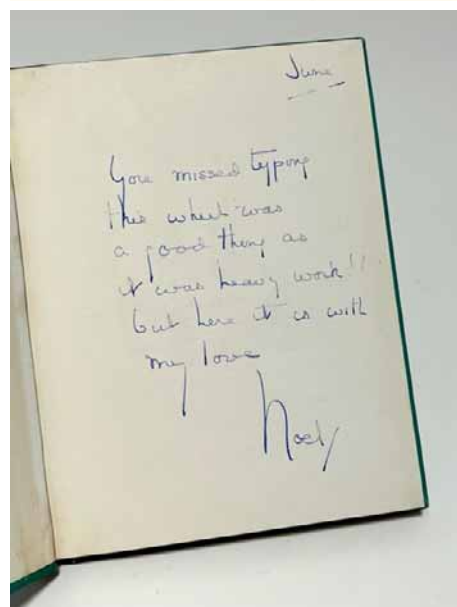 June
You missed typing
this which was
a good thing as
it was heavy work!!
but here it is with
my love
Noel